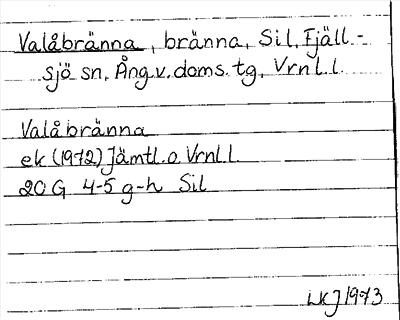 Valåbränna, bränna, Sil, Fjäll-
sjö sn, Ång.v.doms.tg, Vrnl.l.
Valåbränna
ek (1972) Jämtl.o.Vrnl.l.
20G 4-5 g-h Sil
LKJ 1973